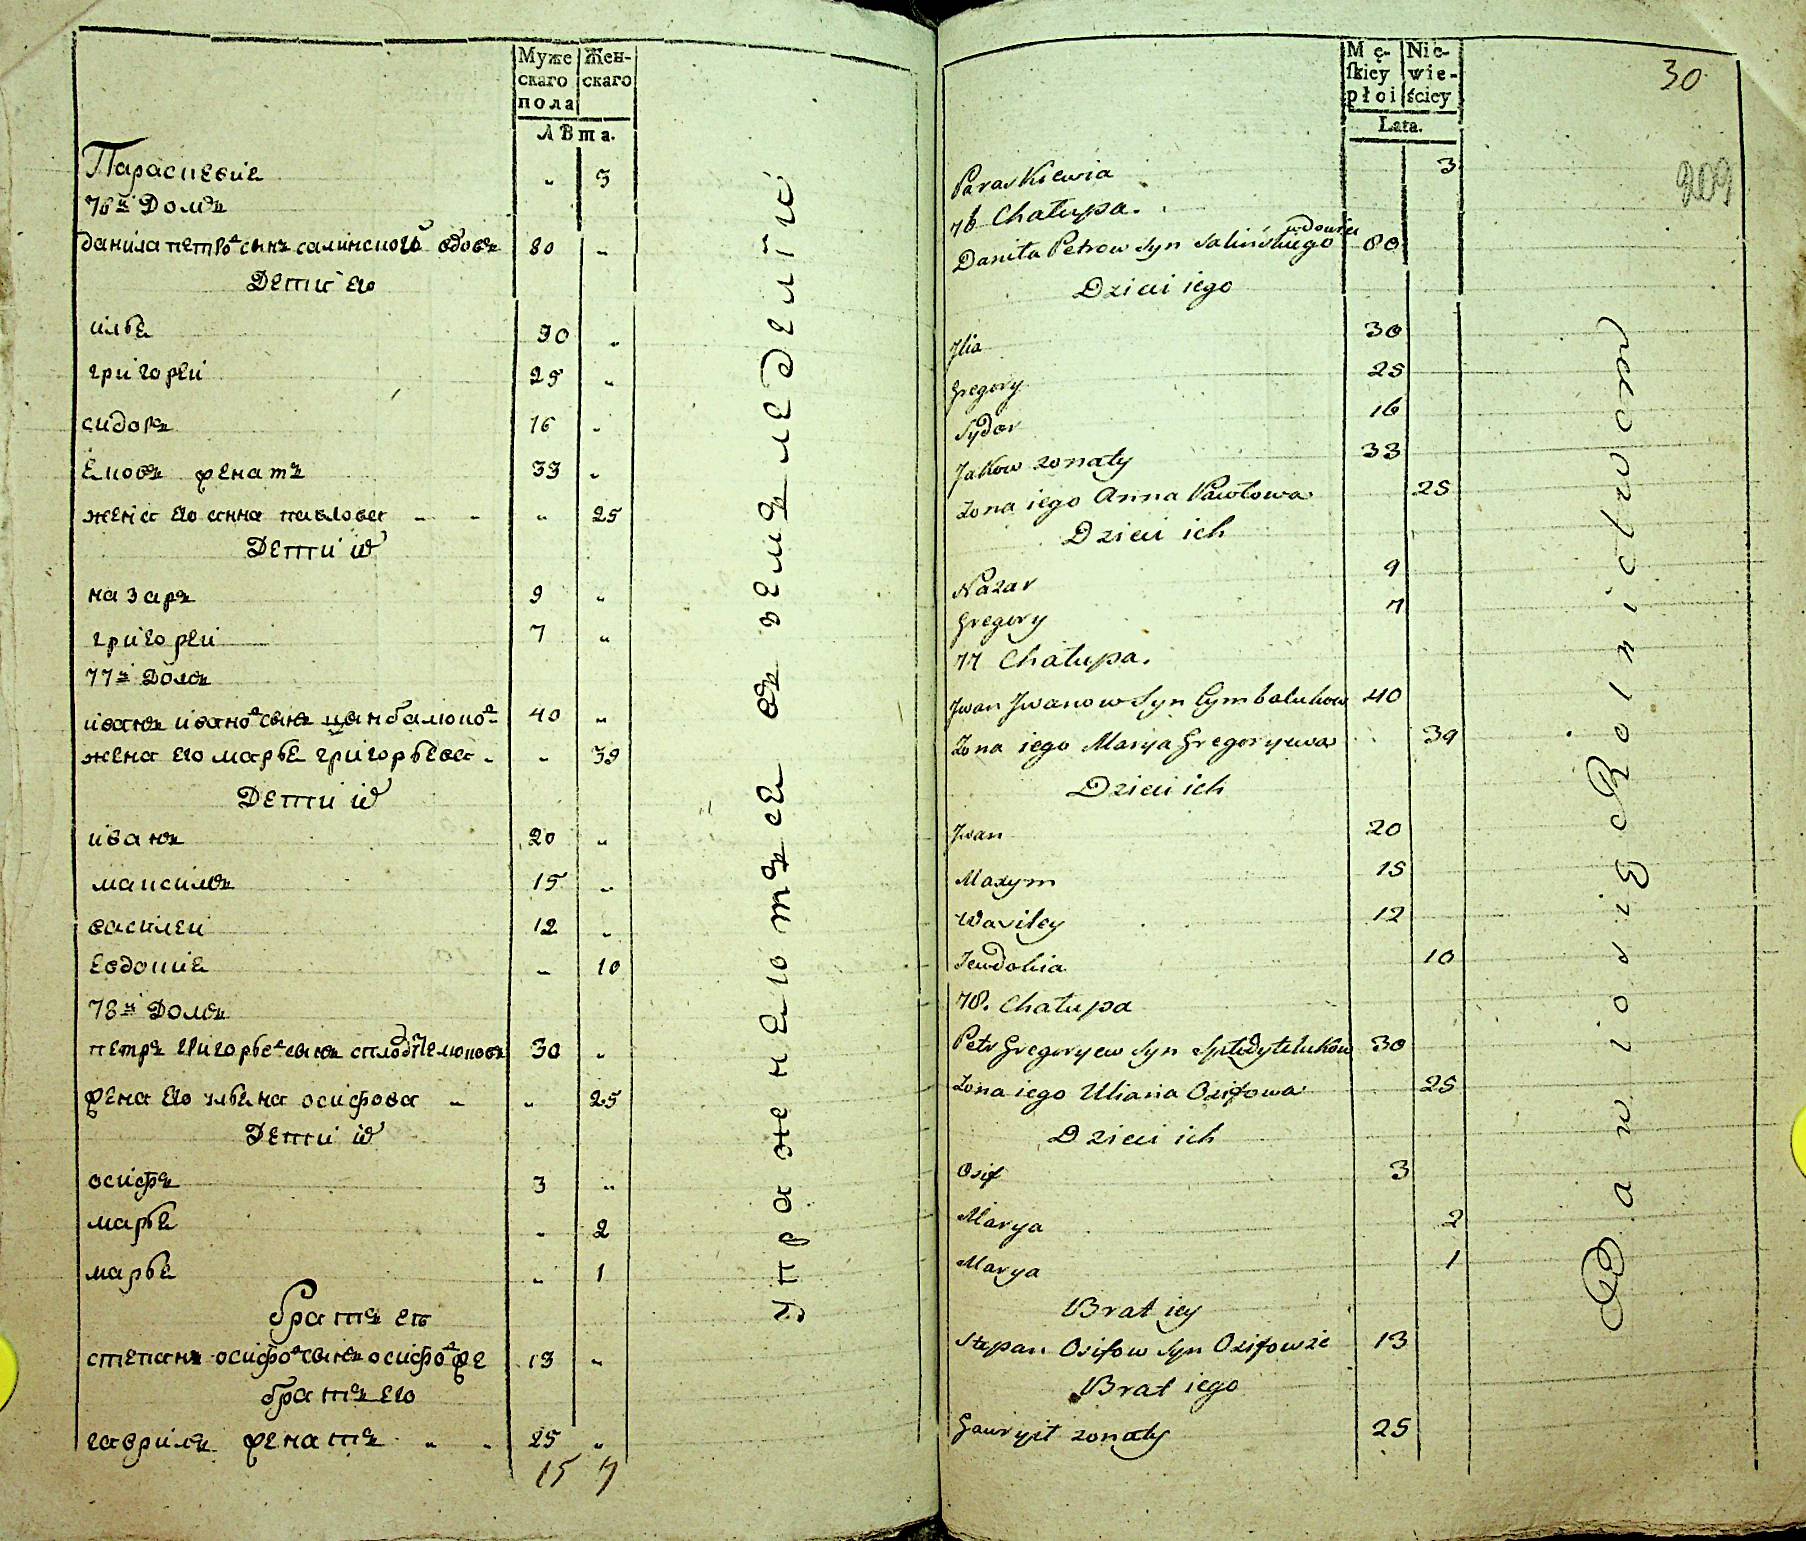 Муже
скаго
пола
Жен-
скаго
Лѣта.
Параскевіѧ „ 3
76й Домъ
данила петровъ сынъ салинского вдовъ 80 „
Дети его
илья 30 „
григореи 25 „
сидоръ 16 „
ѧковъ женатъ 33 „
жена его анна павлова „ 25
Дети их
назаръ 9 „
григореи 7 „
77й Домъ
иванъ ивановъ сынъ цинбалюковъ 40 „
жена его марья григорьева „ 39
Дети их
иванъ 20 „
максимъ 15 „
василеи 12 „
евдокиѧ „ 10
78й Домъ
петръ григорьевъ сынъ 30 „
жена его ульѧна осифова „ 25
Дети их
осифъ 3 „
марья „ 2
марья „ 1
братъ еѧ
степанъ осифовъ сынъ 13 „
братъ его
гаврилъ женатъ 25 „
15 7
упражнѧютъсѧ въ земледелiи
Mę-
ſkiey
płci
Nie-
wie-
ściey
Lata.
30
209
Paraskiewia 3
76 Chałupa.
wdowiec
Daniła Petrow Syn Salińskiego 80
Dzieci iego
Jlia 30
Gregory 25
Sydor 16
Jakow zonaty 33
Zona iego Anna Pawłowa 25
Dzieci ich
Nazar 9
Gregory 7
77 Chałupa.
Jwan Jwanow Syn Cymbalukow 40
Zona iego Marya Gregoryewa 39
Dzieci ich
Jwan 20
Maxym 15
Wasiley 12
Jewdokia 10
78. Chałupa
Petr Gregoryew Syn 30
Zona iego Uliana Osifowa 25
Dzieci ich
Osif 3
Marya 2
Marya 1
Brat iey
Stepan Osifow Syn Osifowze 13
Brat iego
Gawryił zonaty 25
Bawio się Rolnictwom